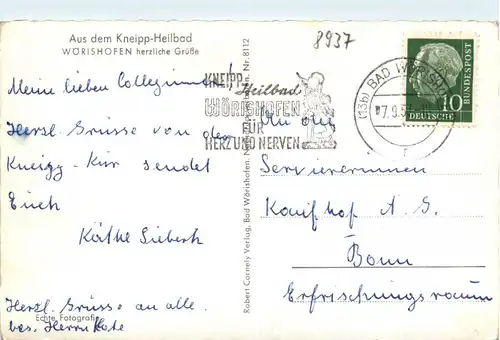 Aus dem Kneipp-Heilbad
WÖRISHOFEN herzliche Grüße
8937
Meine lieben Colleginnen!
Herzl. Grüsse von der
Kneipp-Kur sendet
Euch
Käthe Siebert
Herzl. Grüsse an alle
bes. Herrn
Echte Fotografie
Robert Cornely Verlag, Bad Wörishofen. Nr. 8112
KNEIPP
Heilbad
WÖRISHOFEN
FÜR
HERZ UND NERVEN
(13b) BAD WÖRISH
7.9.5
10
BUNDESPOST
DEUTSCHE
An die
Serviererinnen
Kaufhof A.G.
Bonn
Erfrischungsraum